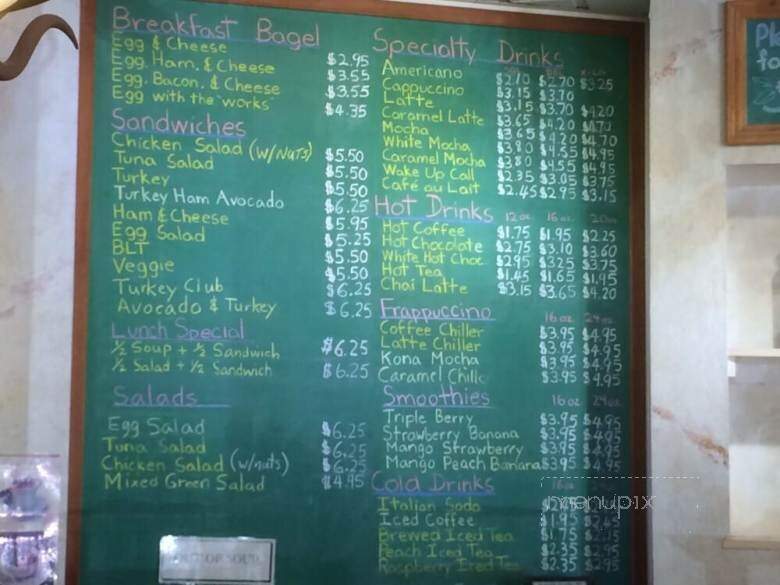 Breakfast Bagel
Egg & Cheese $2.95
Egg, Ham, & Cheese $3.55
Egg, Bacon, & Cheese $3.55
Egg with the "works" $4.35
Sandwiches
Chicken Salad (w/NUTS) $5.50
Tuna Salad $5.50
Turkey $5.50
Turkey Ham Avocado $6.25
Ham & Cheese $5.95
Egg Salad $5.25
BLT $5.50
Veggie $5.50
Turkey Club $6.25
Avocado & Turkey $6.25
Lunch Special
½ Soup + ½ Sandwich $6.25
½ Salad + ½ Sandwich $6.25
Salads
Egg Salad $6.25
Tuna Salad $6.25
Chicken Salad (w/nuts) $6.25
Mixed Green Salad $4.95
Specialty Drinks
Americano $2.10 $2.70 $3.25
Cappuccino $3.15 $3.70
Latte $3.15 $3.70 $4.20
Caramel Latte $3.65 $4.20 $4.70
Mocha $3.65 $4.20 $4.70
White Mocha $3.80 $4.55 $4.95
Caramel Mocha $3.80 $4.55 $4.95
Wake Up Call $2.35 $3.05 $3.75
Café au Lait $2.45 $2.95 $3.15
Hot Drinks 12oz. 16oz. 20oz
Hot Coffee $1.75 $1.95 $2.25
Hot Chocolate $2.75 $3.10 $3.60
White Hot Choc $2.95 $3.25 $3.75
Hot Tea $1.45 $1.65 $1.95
Chai Latte $3.15 $3.65 $4.20
Frappuccino 16oz 24oz
Coffee Chiller $3.95 $4.95
Latte Chiller $3.95 $4.95
Kona Mocha $3.95 $4.95
Caramel Chille $3.95 $4.95
Smoothies 16oz 24oz
Triple Berry $3.95 $4.95
Strawberry Banana $3.95 $4.95
Mango Strawberry $3.95 $4.95
Mango Peach Banana $3.95 $4.95
Cold Drinks 16oz
Italian Soda
Iced Coffee $1.95 $2.45
Brewed Iced Tea $1.75
Peach Iced Tea $2.35 $2.95
Raspberry Iced Tea $2.35 $2.95
menupix